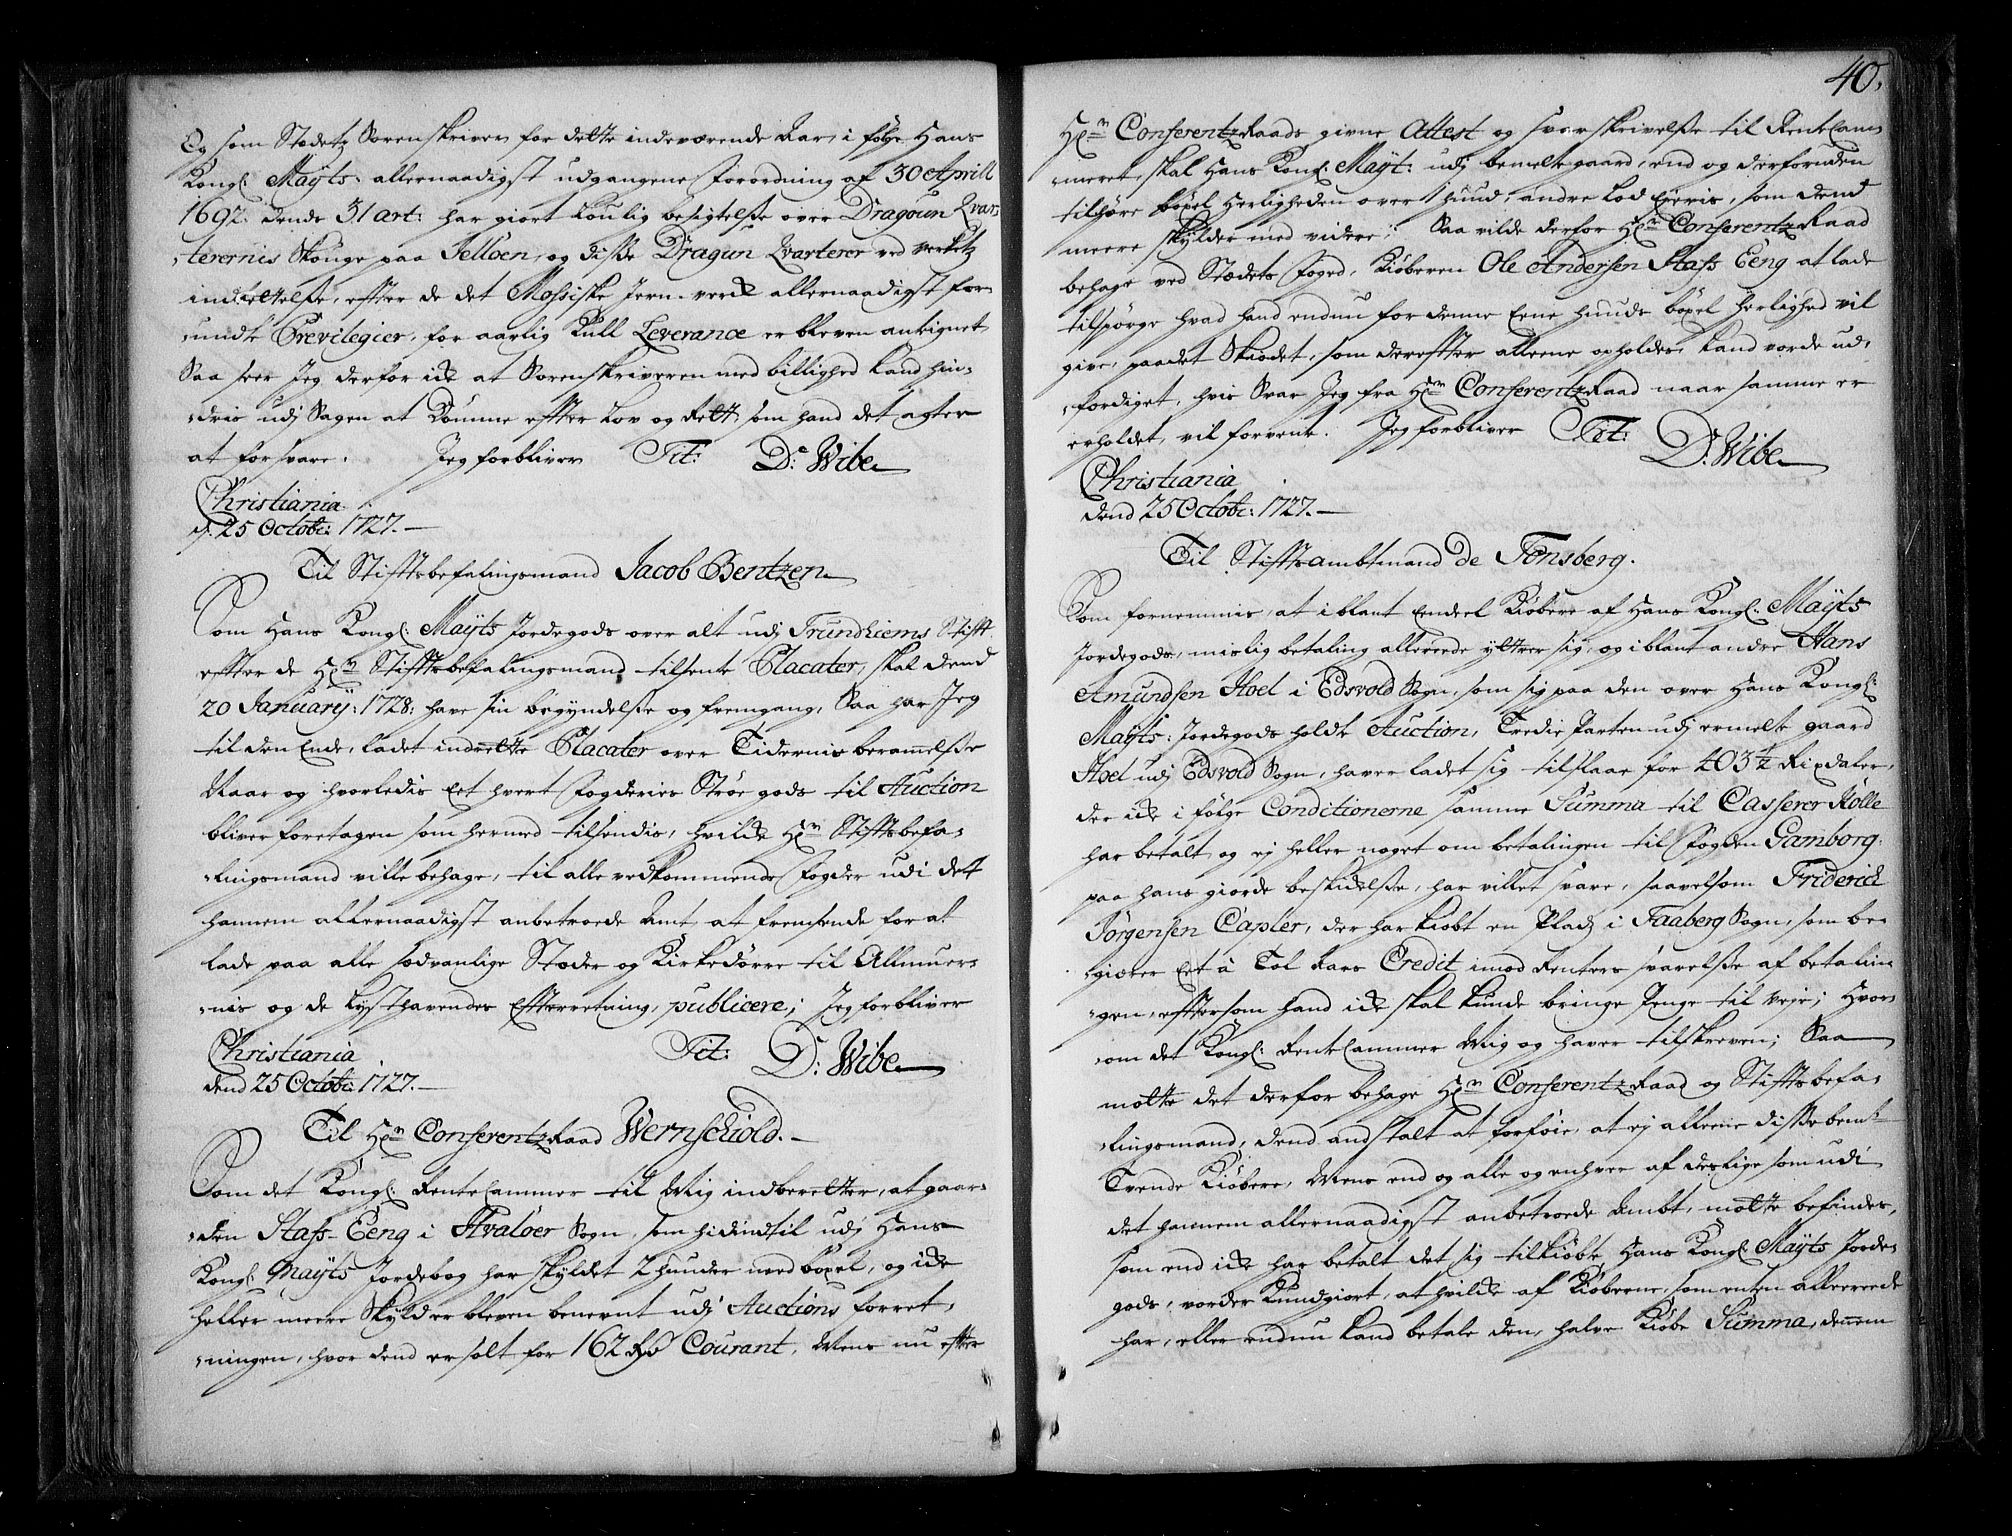 Og som Stedetz Sorenskriver for dette indeværende Aar, i følge Hans
Kongl: Mayts: allernaadigst udgangene Forordning af 30 Aprill
1692. dends 31 art: har giort Louglig besigtelse over Dragoun Qvar-
-terernis Skouge paa Jelløen, og disse Dragun Qvarterer ved Verketz
indrettelse, efter de det Mossiske Jern-verck allernaadigst for-
-undte Previlegier, for aarlig Kull Leverance er bleven antegnet
Saa seer Jeg derfor icke at Sorenskriveren med billighed kand hin-
-dris udj Sagen at Dømme efter Lov og Rett, som hand det agter
at forsvare. Jeg forbliver Tit: D: Wibe
Christiania
d. 25 Octobr: 1727.
Til Stiftsbefalingsmand Jacob Bentzen
Som Hans Kongl: Mayts Jordegods over alt udj Trundhiems Stift
efter de Hr: Stiftsbefalingsmand tilsente Placater, skal dend
20 January: 1728: have sin begyndelse og fremgang, Saa har Jeg
til den Ende, ladet indrette Placater over Tidernis berammelse
Naar og hvorledis Eet hvert Fogderies Strøe gods til Auction
bliver foretagen som hermed tilsendis, hvilcke Hr: Stiftsbefa-
-lingsmand ville behage, til alle vedkommende Fogder udi det
hannem allernaadigst anbetroede Amt, at fremsende for at
lade paa alle sædvanlige Stæder og Kirkedørre til Allmuer-
-nis og de Lysthavendes Efterretning, publicere; Jeg forbliver
Christiania Tit: D: Wibe
dend 25 Octobr: 1727.
Til Hr: ConferentzRaad Wernschiold.
Som det Kongl: RenteCammer til Mig indberetter, at gaar-
-den Stafs-Eeng i Hvaløer Sogn, som hidindtil udj Hans
Kongl: Mayts Jordebog har skyldet 2 huuder med bøxel, og icke
heller meere Skyld er bleven benevnt udj Auctions forret-
-ningen, hvor dend er solt for 162 Rd Courant, Mens nu efter
40.
Hr: ConferentzRaads givne Attest og svarskrivelse til RenteCam-
-meret, skal Hans Kongl: Mayt: udj bemelte gaard, end og derforuden
tilhøre bøxel Herligheden over 1 huud, andre Lod Eieris, som dend
meere skylder med videre; Saa vilde derfor Hr: ConferentzRaad
behage ved Stædets Foged, Kiøberen Ole Andersen Stafs Eeng at lade
tilspørge hvad hand endnu for denne Eene huuds bøxel herlighed vil
give, paadet Skiødet, som derefter alleene opholdes, kand vorde ud-
-færdiget, hvis Svar Jeg fra Hr: ConferentzRaad naar samme er
erholdet, vil forvente. Jeg forbliver Tit:
D: Wibe
Christiania
dend 25 Octobr: 1727.
Til Stiftsambtmand de Tonsberg.
Som fornemmis, at iblant Endeel Kiøbere af Hans Kongl: Mayts
Jordegods, mislig betaling allereede yttrer sig, og iblant andre Hans
Amundsen Hoel i Edsvold Sogn, som sig paa den over Hans Kongl:
Mayts: Jordegods holdte Auction, Tredie Parten udj ermelte gaard
Hoel udj Edsvold Sogn, haver ladet sig tilslaae for 403½ Rixdaler,
der icke i følge Conditionerne samme Summa til Casserer Rølle
har betalt, og ej heller noget om betalingen til Fogden Gamborg:
paa hans giorde beskickelse, har villet svare, saavelsom Friderich
Jørgensen Capler, der har kiøbt en Pladz i Faaberg Sogn, som be-
-giærer Eet à Tol Aars Credit imod Renters svarelse af betalin-
-gen, eftersom hand icke skal kunde bringe Penge til veje; Hvor-
-om det Kongl: RenteCammer Mig og haver tilskreven; Saa
motte det derfor behage Hr: ConferentzRaad og Stiftsbefa-
-lingsmand, dend anstalt at forføie, at ej alleene disse bemte
Tvende Kiøbere, Mens end og alle og enhver af deslige som udi
det hannem allernaadigst anbetroede Ambt, motte befindes,
som end icke har betalt det sig tilkiøbte Hans Kongl: Mayts Jorde-
gods, vorder kundgiort, at hvilcke af Kiøberne, som enten allereede
har, eller endnu kand betale den, halve Kiøbe Summa, dennem